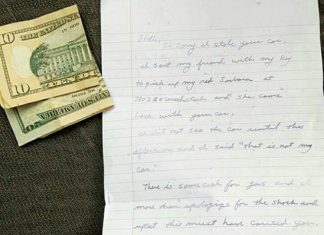 10
10
Hello,
So sorry I stole your car
I sent my friend with my key
to pick up my red Subaru at
and she came
back with your car.
I did not see the car until this
and I said "that is not my
car."
There is some cash for gas and I
more than apologize for the shock and
upset this must have caused you.